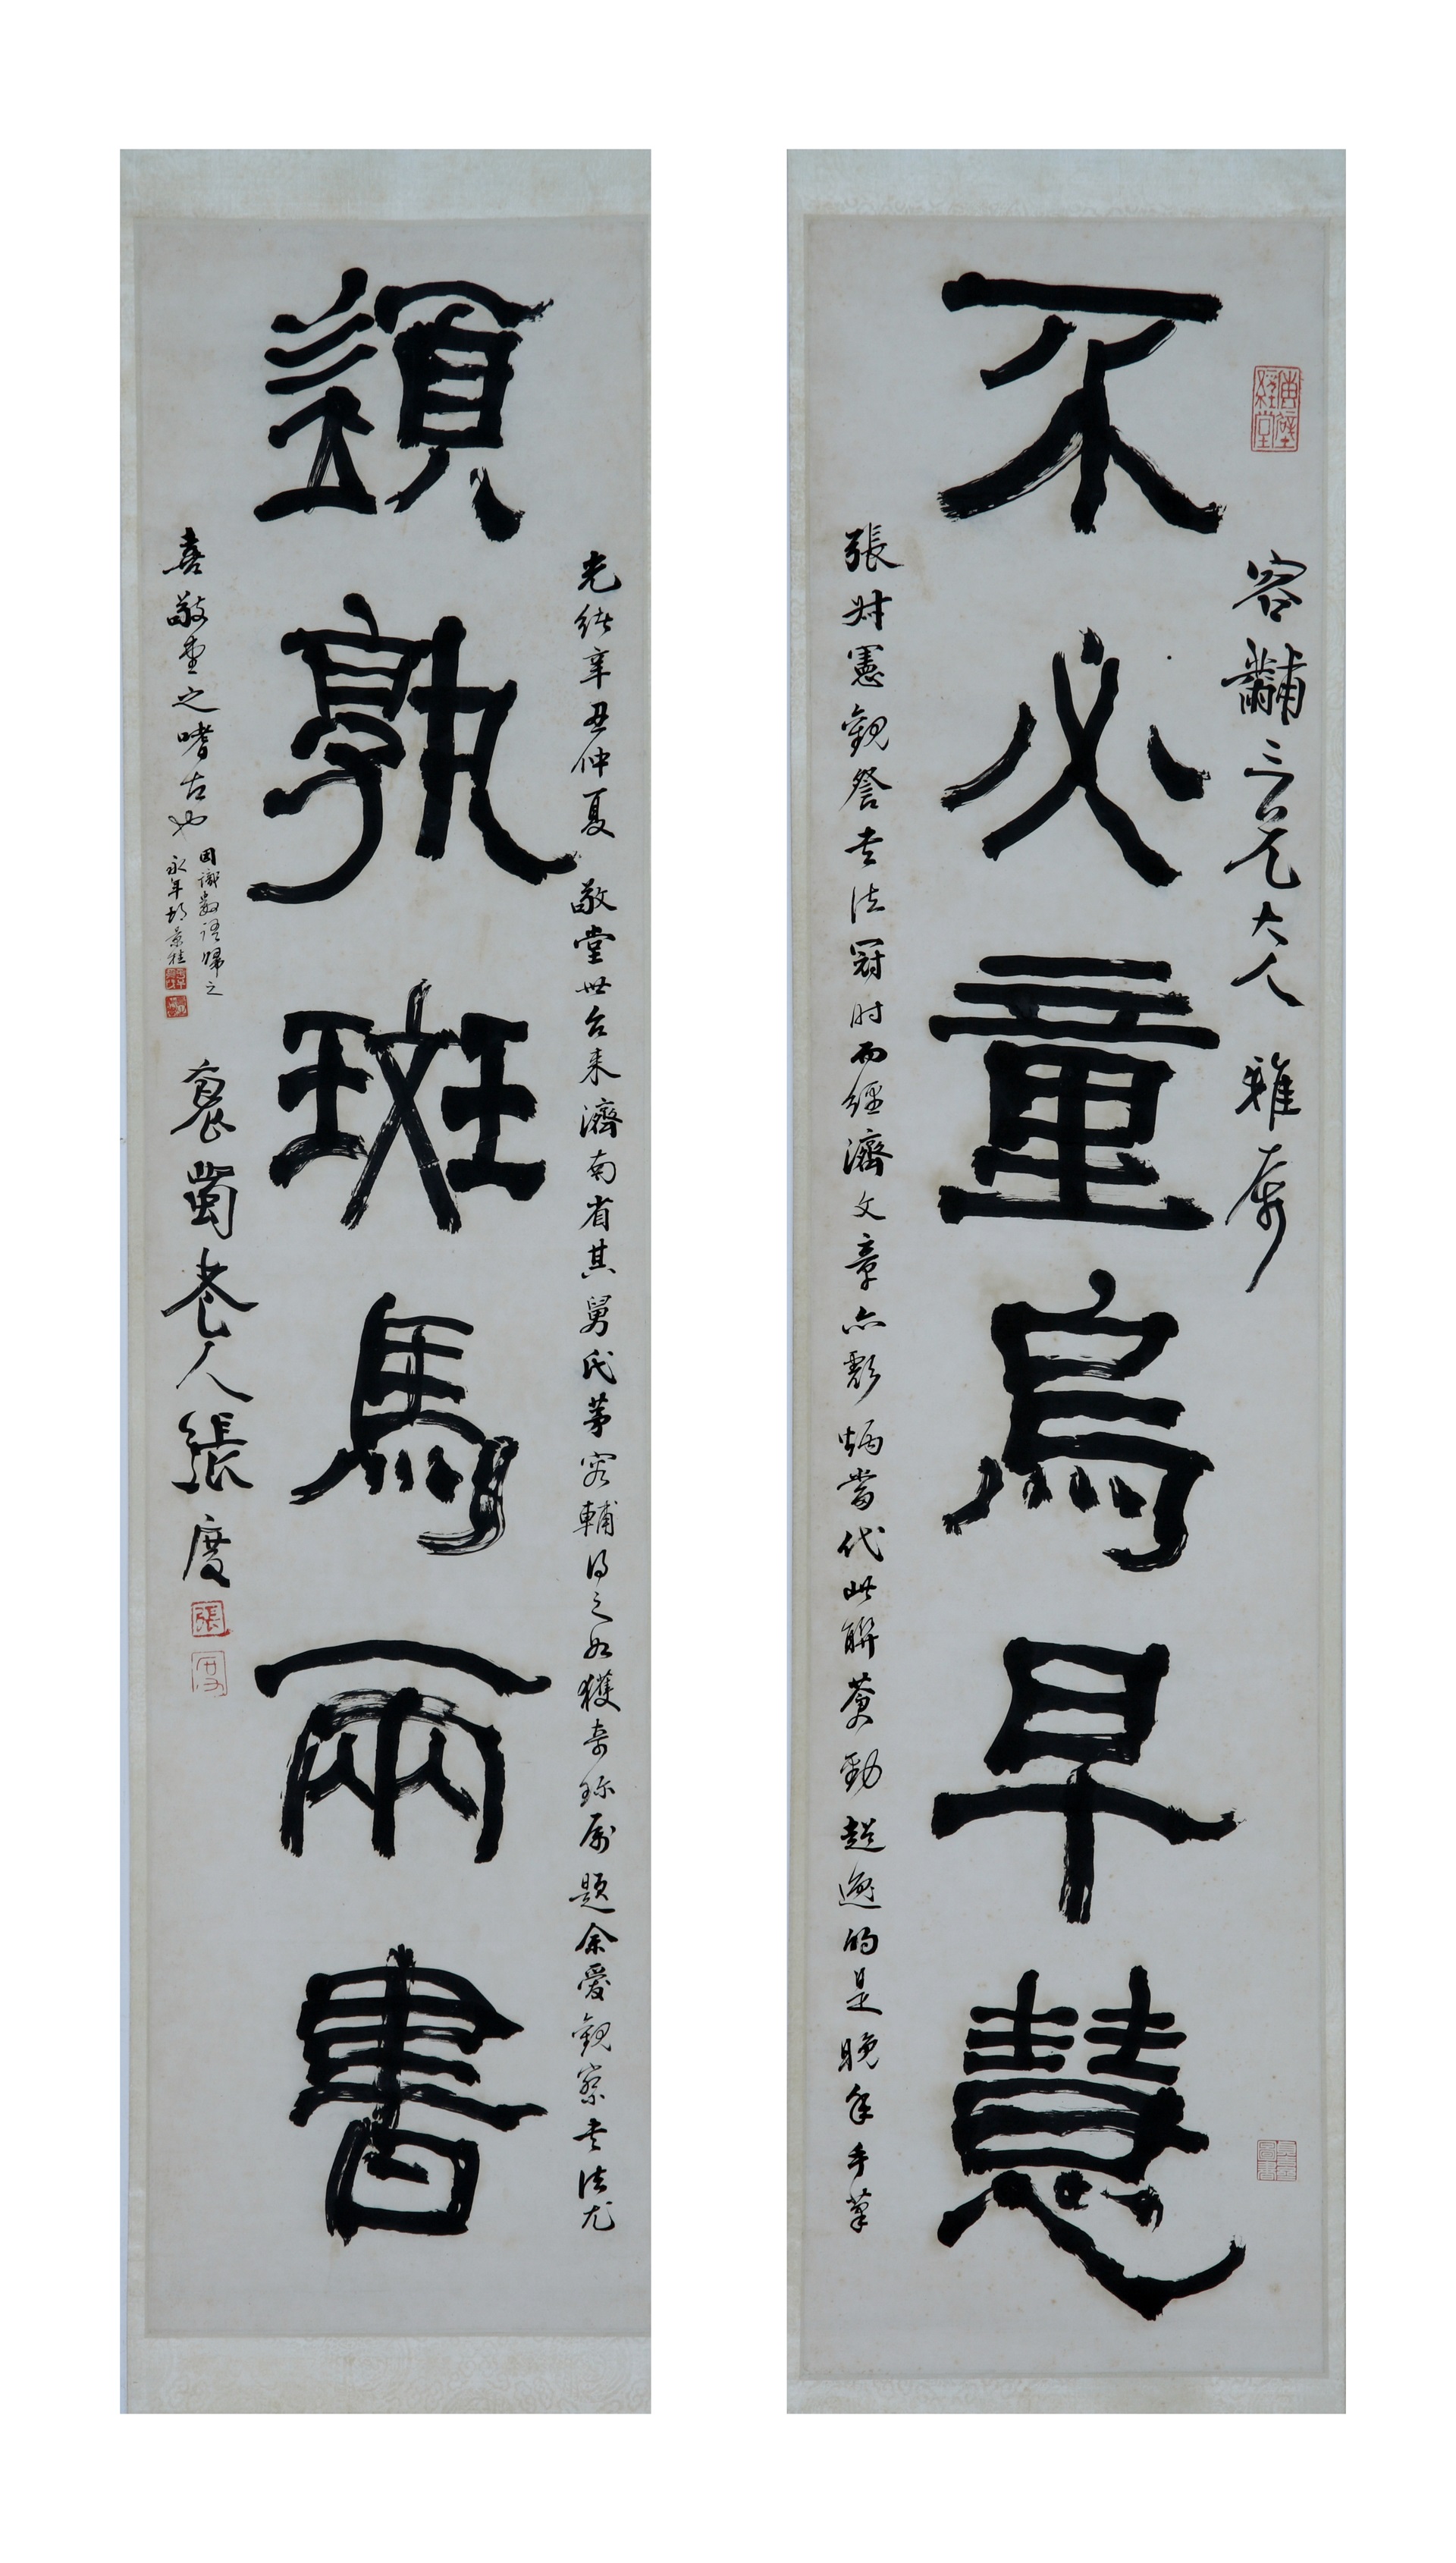 容黼三兄大人雅
不必童烏早慧
張叔憲觀詧書法冠時而經濟文章亦彪炳當代此聯蒼勁超逸的是晚年手筆
光緒辛丑仲夏敬堂世台來濟南省其舅氏茅容輔得之如獲奇珍屬題余愛觀察書法尤
須孰斑馬兩書
喜敬堂之嗜古也因識數語歸之
永年胡景桂
裒蜀老人張度